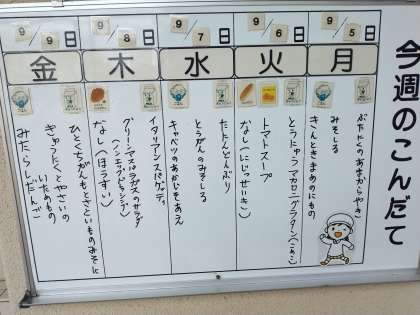 今週のこんだて
9/5日
月
ぶたにくのあまからやき
みそしる
きんときまめのにもの
9/6日
火
とうにゅうマカロニグラタン
トマトスープ
なし(にじっせいき)
9/7日
水
たたんどんぶり
とうがんのみそしる
キャベツのあかじそあえ
9/8日
木
イタリアンスパゲティ
グリーンアスパラガスのサラダ
(ノンエッグドレッシング)
なし(ほうすい)
9/9日
金
ひとくちがんもときせいものみそに
ぎゅうにくとやさいの
いためもの
みたらしだんご